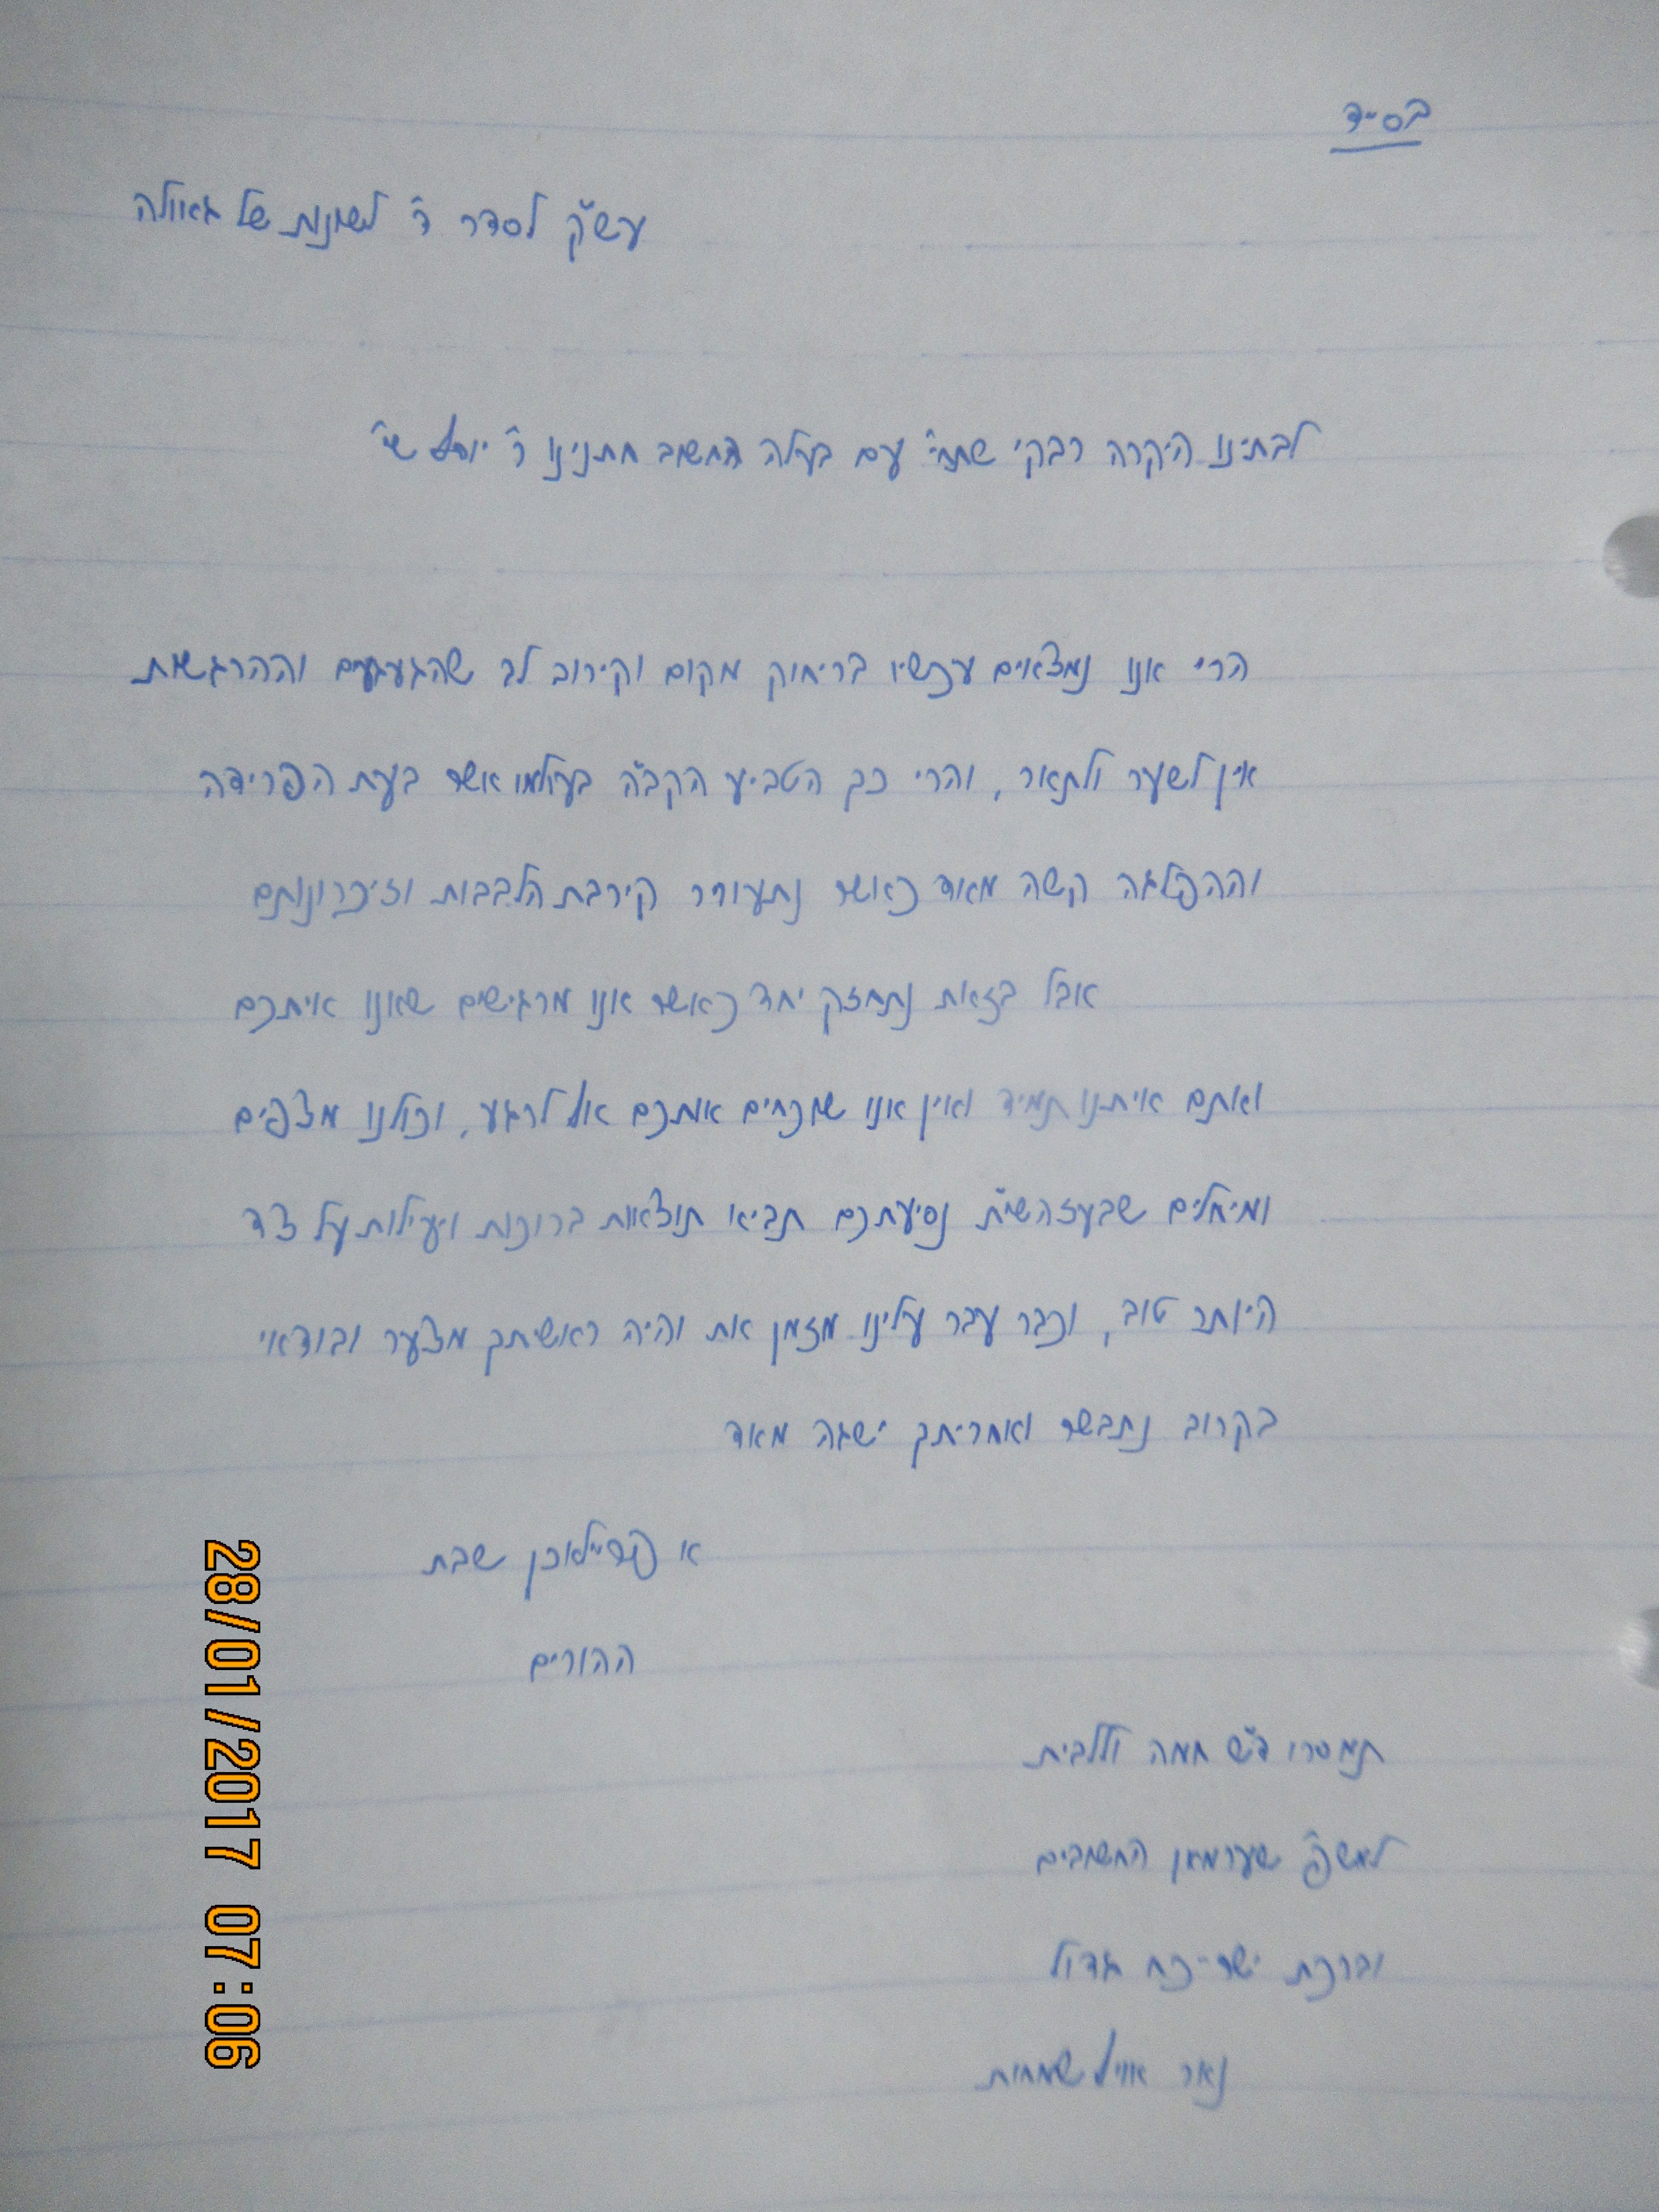 בס״ד
עש״ק לסדר ד' לשונות של גאולה
לבתינו היקרה רבקי שתחי' עם בעלה החשוב חתנינו ר' יוסף שי'
הרי אנו נמצאים עכשיו בריחוק מקום וקירוב לב שהגעגעים וההרגשות
אין לשער ולתאר, והרי כך הטביע הקב״ה בעולמו אשר בעת הפרידה
וההפלגה קשה מאוד כאשר נתעורר קירבת הלבבות וזיכרונותם
אבל בזאת נתחזק יחד כאשר אנו מרגישים שאנו איתכם
ואתם איתנו תמיד ואין אנו שוכחים אתכם אף לרגע, וכולנו מצפים
ומיחלים שבעזהשי״ת נסיעתכם תביא תוצאות ברוכות ויעילות על צד
היותר טוב, וכבר עבר עלינו מזמן את והיה ראשיתך מצער ובודאי
בקרוב נתבשר ואחריתך ישגה מאד
א פרייליכן שבת
ההורים
תמסרו ד״ש חמה ולבבית
למשפ' שערמאן החשובים
וברכת ישר-כח גדול
נאר אויף שמחות
28/01/2017 07:06